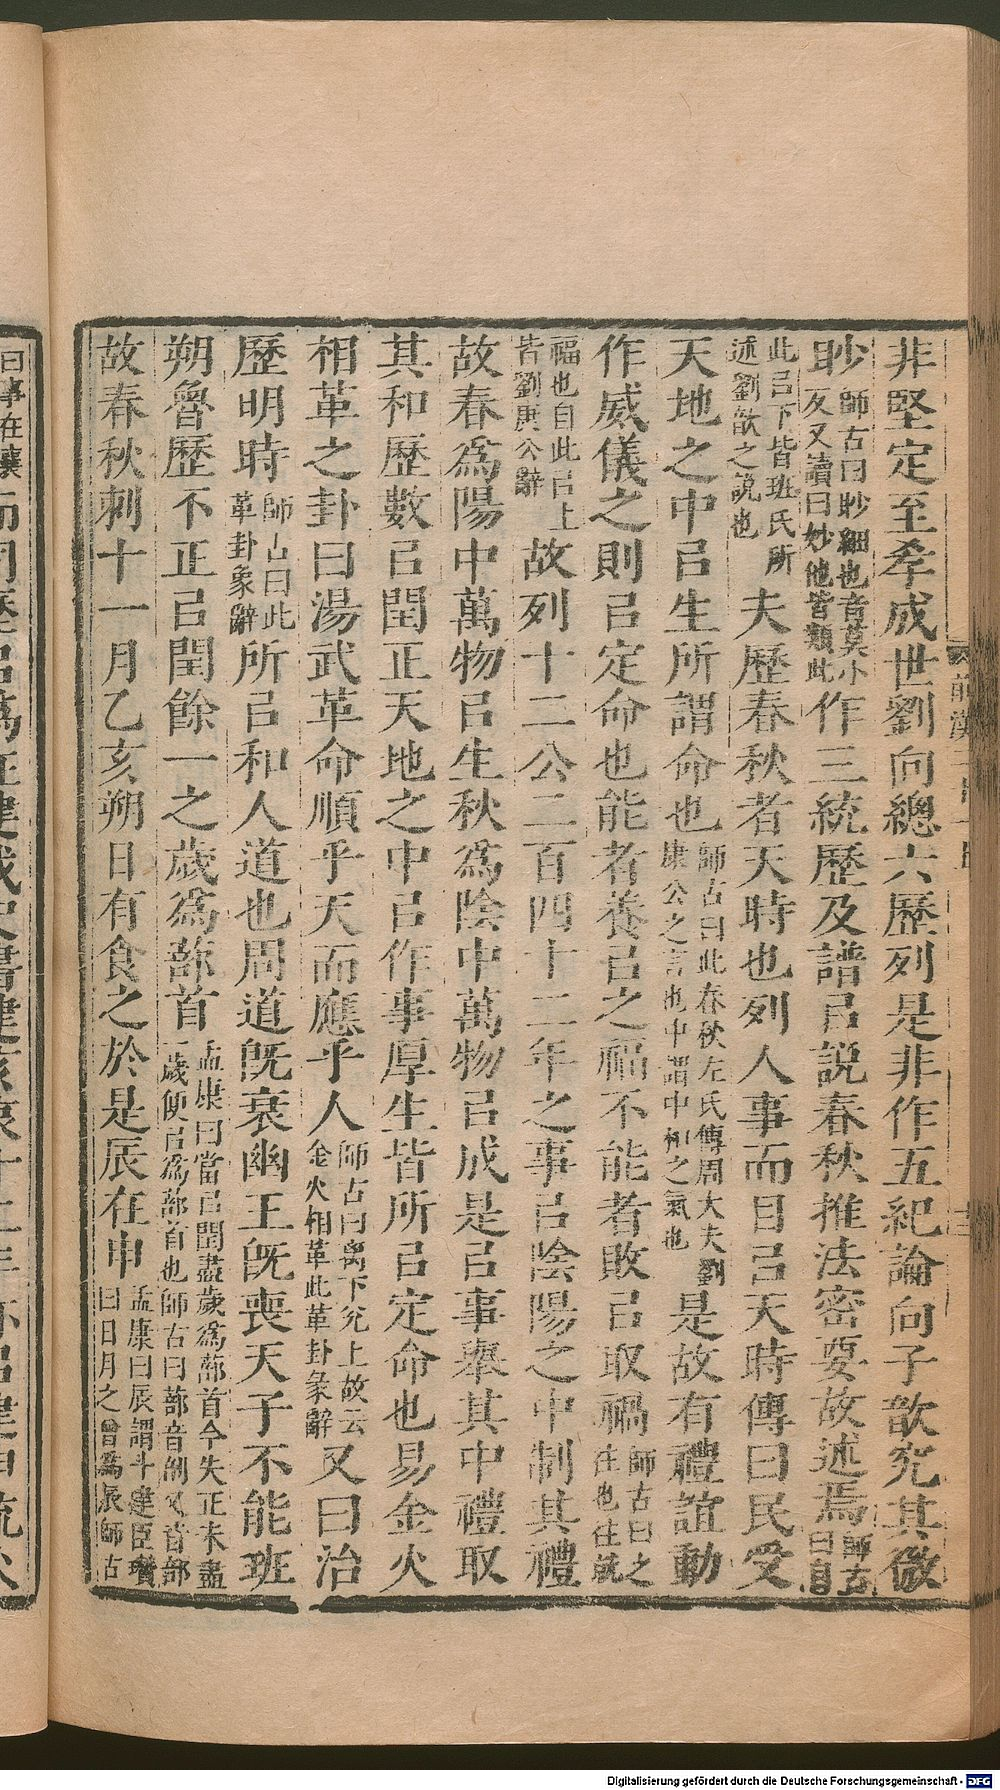 非堅定至孝成世劉向總六歷列是非作五紀論向子歆究其微
眇師古曰眇細也音莫小反又讀曰妙他皆類此作三統歷及譜㠯説春秋推法密要故述焉師古曰自
此㠯下皆班氏所述劉歆之説也夫歷春秋者天時也列人事而目㠯天時傳曰民受
天地之中㠯生所謂命也師古曰此春秋左氏傳周大夫劉康公之言也中謂中和之氣也是故有禮誼動
作威儀之則㠯定命也能者養㠯之福不能者敗㠯取禍師古曰之往也往就
福也自此㠯上皆劉康公辭故列十二公二百四十二年之事㠯陰陽之中制其禮
故春爲陽中萬物㠯生秋爲陰中萬物㠯成是㠯事舉其中禮取
其和歷數㠯閏正天地之中㠯作事厚生皆所㠯定命也易金火
相革之卦曰湯武革命順乎天而應乎人師古曰离下兊上故云金火相革此革卦彖辭又曰治
歷明時師古曰此革卦象辭所㠯和人道也周道旣衰幽王旣喪天子不能班
朔魯歷不正㠯閏餘一之歲爲蔀首孟康曰當㠯閏盡歲爲蔀首今失正未盡一歲便㠯爲蔀首也師古曰蔀音剖又音部
故春秋刺十一月乙亥朔日有食之於是辰在申孟康曰辰謂斗建臣瓚曰日月之會爲辰師古
曰事在襄
Digitalisierung gefördert durch die Deutsche Forschungsgemeinschaft - DFG